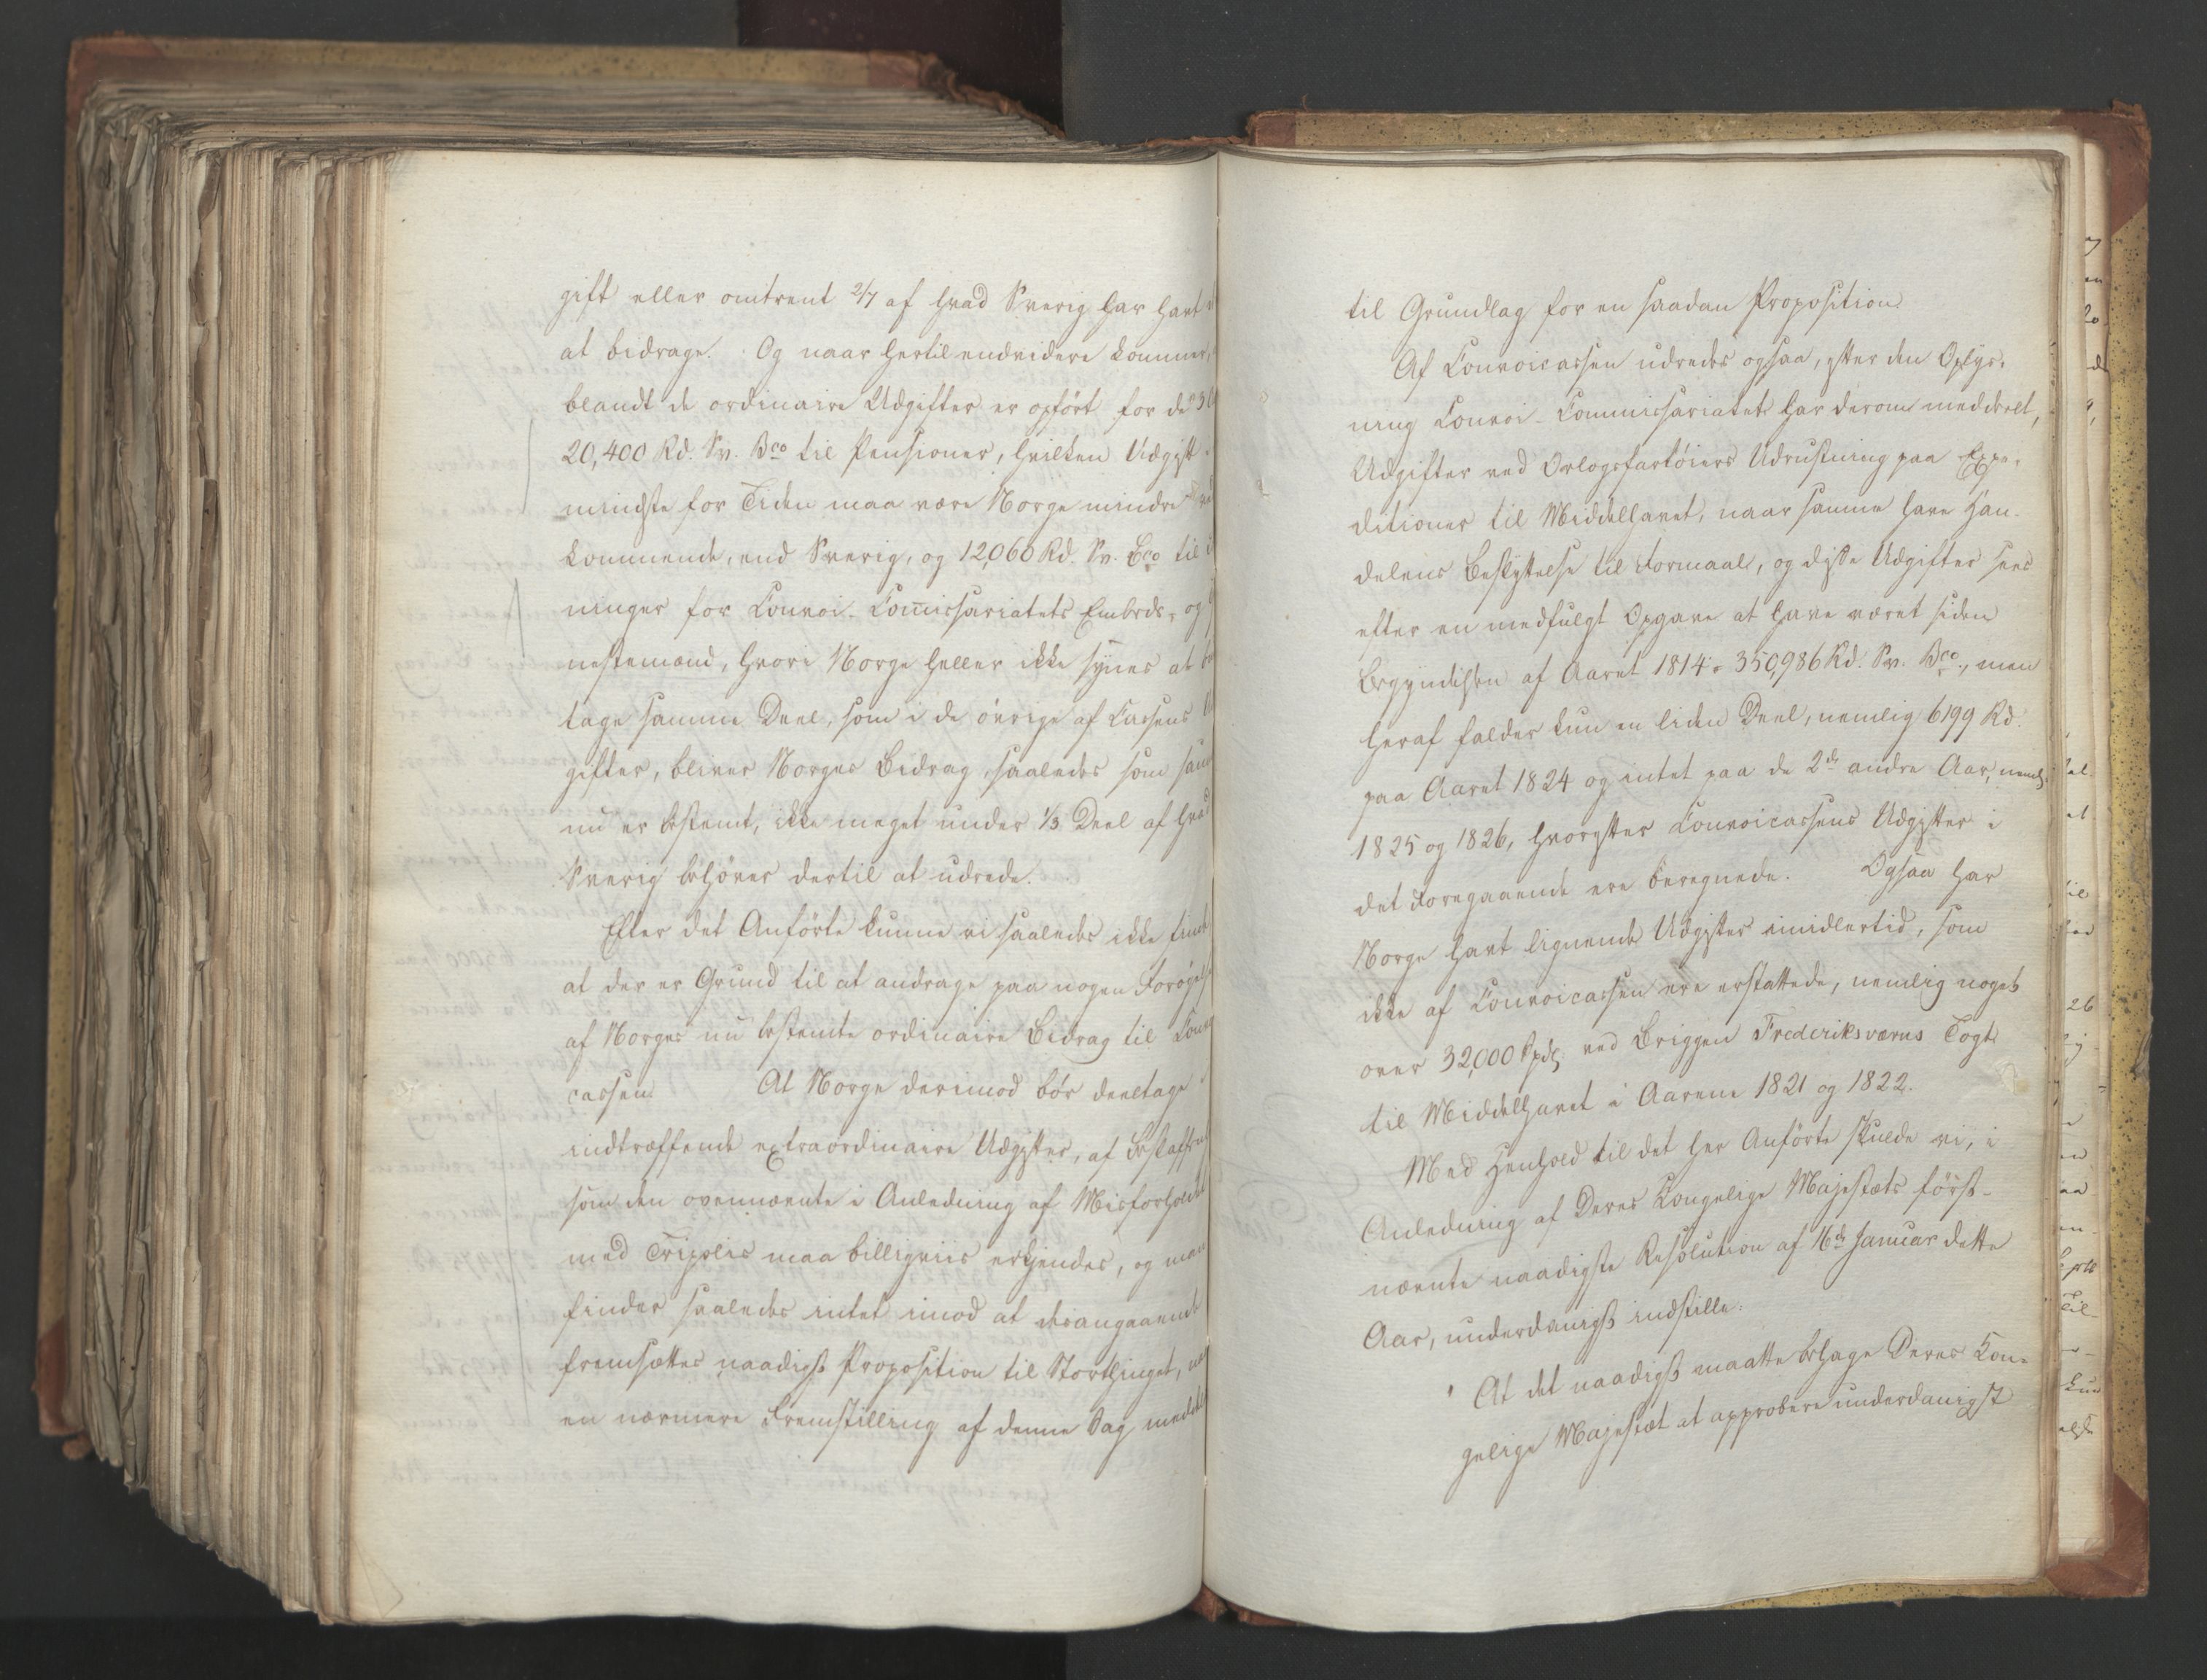 gift eller omtrent 2/7 af hvad Sverig har havt
at bidrage. Og naar hertil endvidere kommer,
blandt de ordinaire Udgifter er opført for de
20,400 Rd. Sv. Bco til Pensioner, hvilken Udgift
mindste for Tiden maa være Norge mindre
kommende, end Sverig, og 12,060 Rd. Sv. Bco til
ninger for Convoi-Comissariatets Embeds- og
nestemænd, hvori Norge heller ikke synes at
tage samme Deel, som i de øvrige af Cassens
gifter, bliver Norges Bidrag, saaledes som
nu er bestemt, ikke meget under 1/3 Deel af hvad
Sverig behøver dertil at udrede.
Efter det Anførte kunne vi saaledes ikke finde
at der er Grund til at andrage paa nogen Forøgelse
af Norges nu bestemte ordinaire Bidrag til
cassen. At Norge derimod bør deeltage
indtræffende extraordinaire Udgifter, af
som den ovennævnte i Anledning af Misforholdet
med Tripolis maa billigviis erkjendes, og man
finder saaledes intet imod at desangaaende
fremsættes naadigst Proposition til Storthinget,
en nærmere Fremstilling af denne Sag
til Grundlag for en saadan Proposition.
Af Convoicassen udredes ogsaa, efter den Oplys-
ning Convoi-Commissariatet har derom meddeelt,
Udgifter ved Orlogsfartøiers Udrustning paa Expe-
ditioner til Middelhavet, naar samme have Han-
delens Beskyttelse til Formaal, og disse Udgifter sees
efter en medfulgt Opgave at have været siden
Begyndelsen af Aaret 1814 = 350,986 Rd. Sv. Bco., men
heraf falder kun en liden Deel, nemlig 6199 Rd.
paa Aaret 1824 og intet paa de 2de andre Aar,
1825 og 1826, hvorefter Convoicassens Udgifter i
det Foregaaende ere beregnede. Ogsaa har
Norge havt lignende Udgifter imidlertid, som
ikke af Convoicassen ere erstattede, nemlig noget
over 32,000 Spd ved Briggen Frederiksværns Togt
til Middelhavet i Aarene 1821 og 1822.
Med Henhold til det her Anførte skulde vi, i
Anledning af Deres Kongelige Majestæts først-
nævnte naadigste Resolution af 16de Januar dette
Aar, underdanigst indstille:
At det naadigst maatte behage Deres Kon-
gelige Majestæt at approbere underdanigst